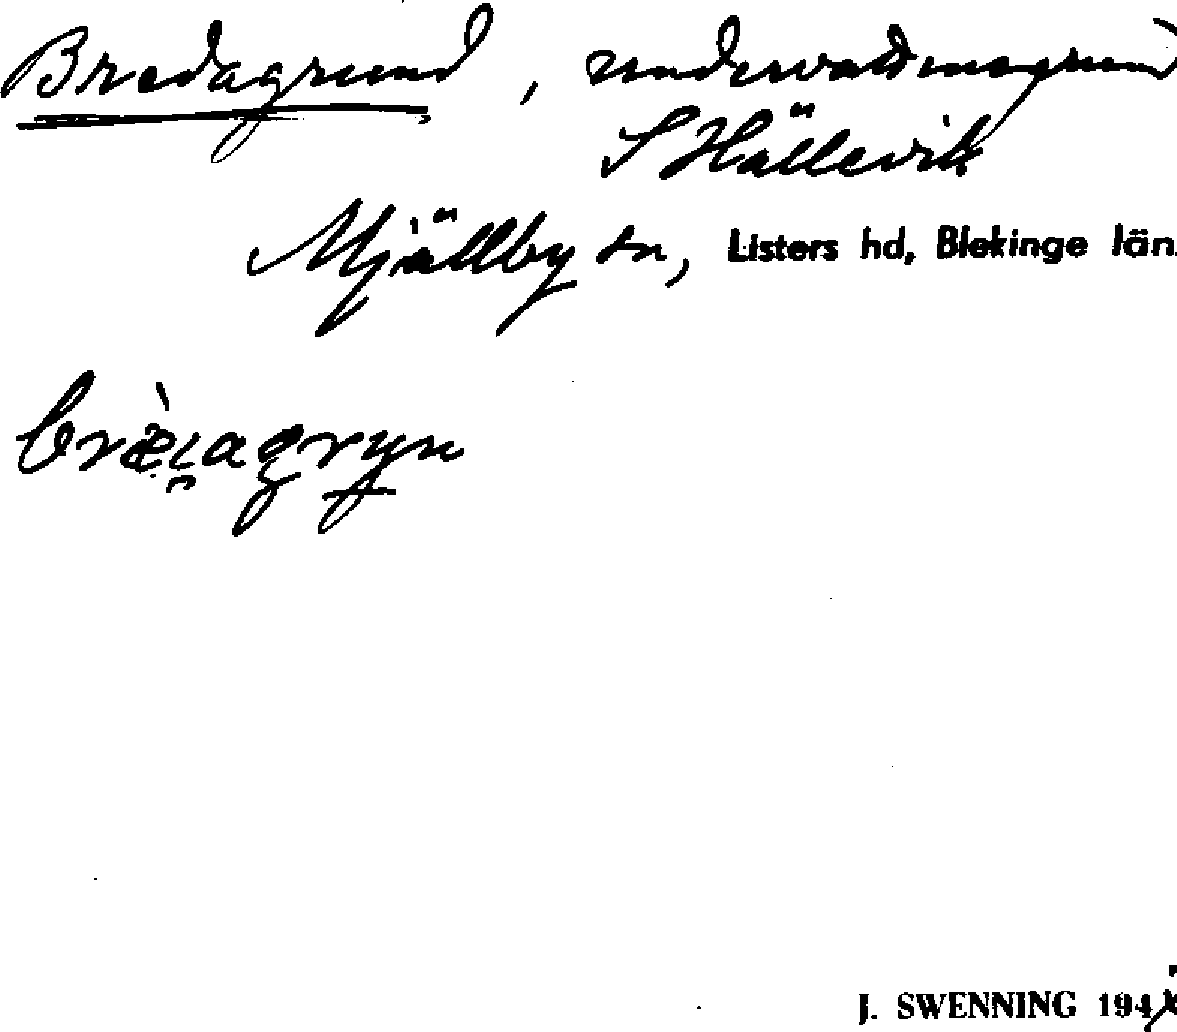 Bredagrund, undervattensgrund
S Hällevik
Mjällby sn, Listers hd, Blekinge län.
bræ̀i̯agryn
J. SWENNING 194